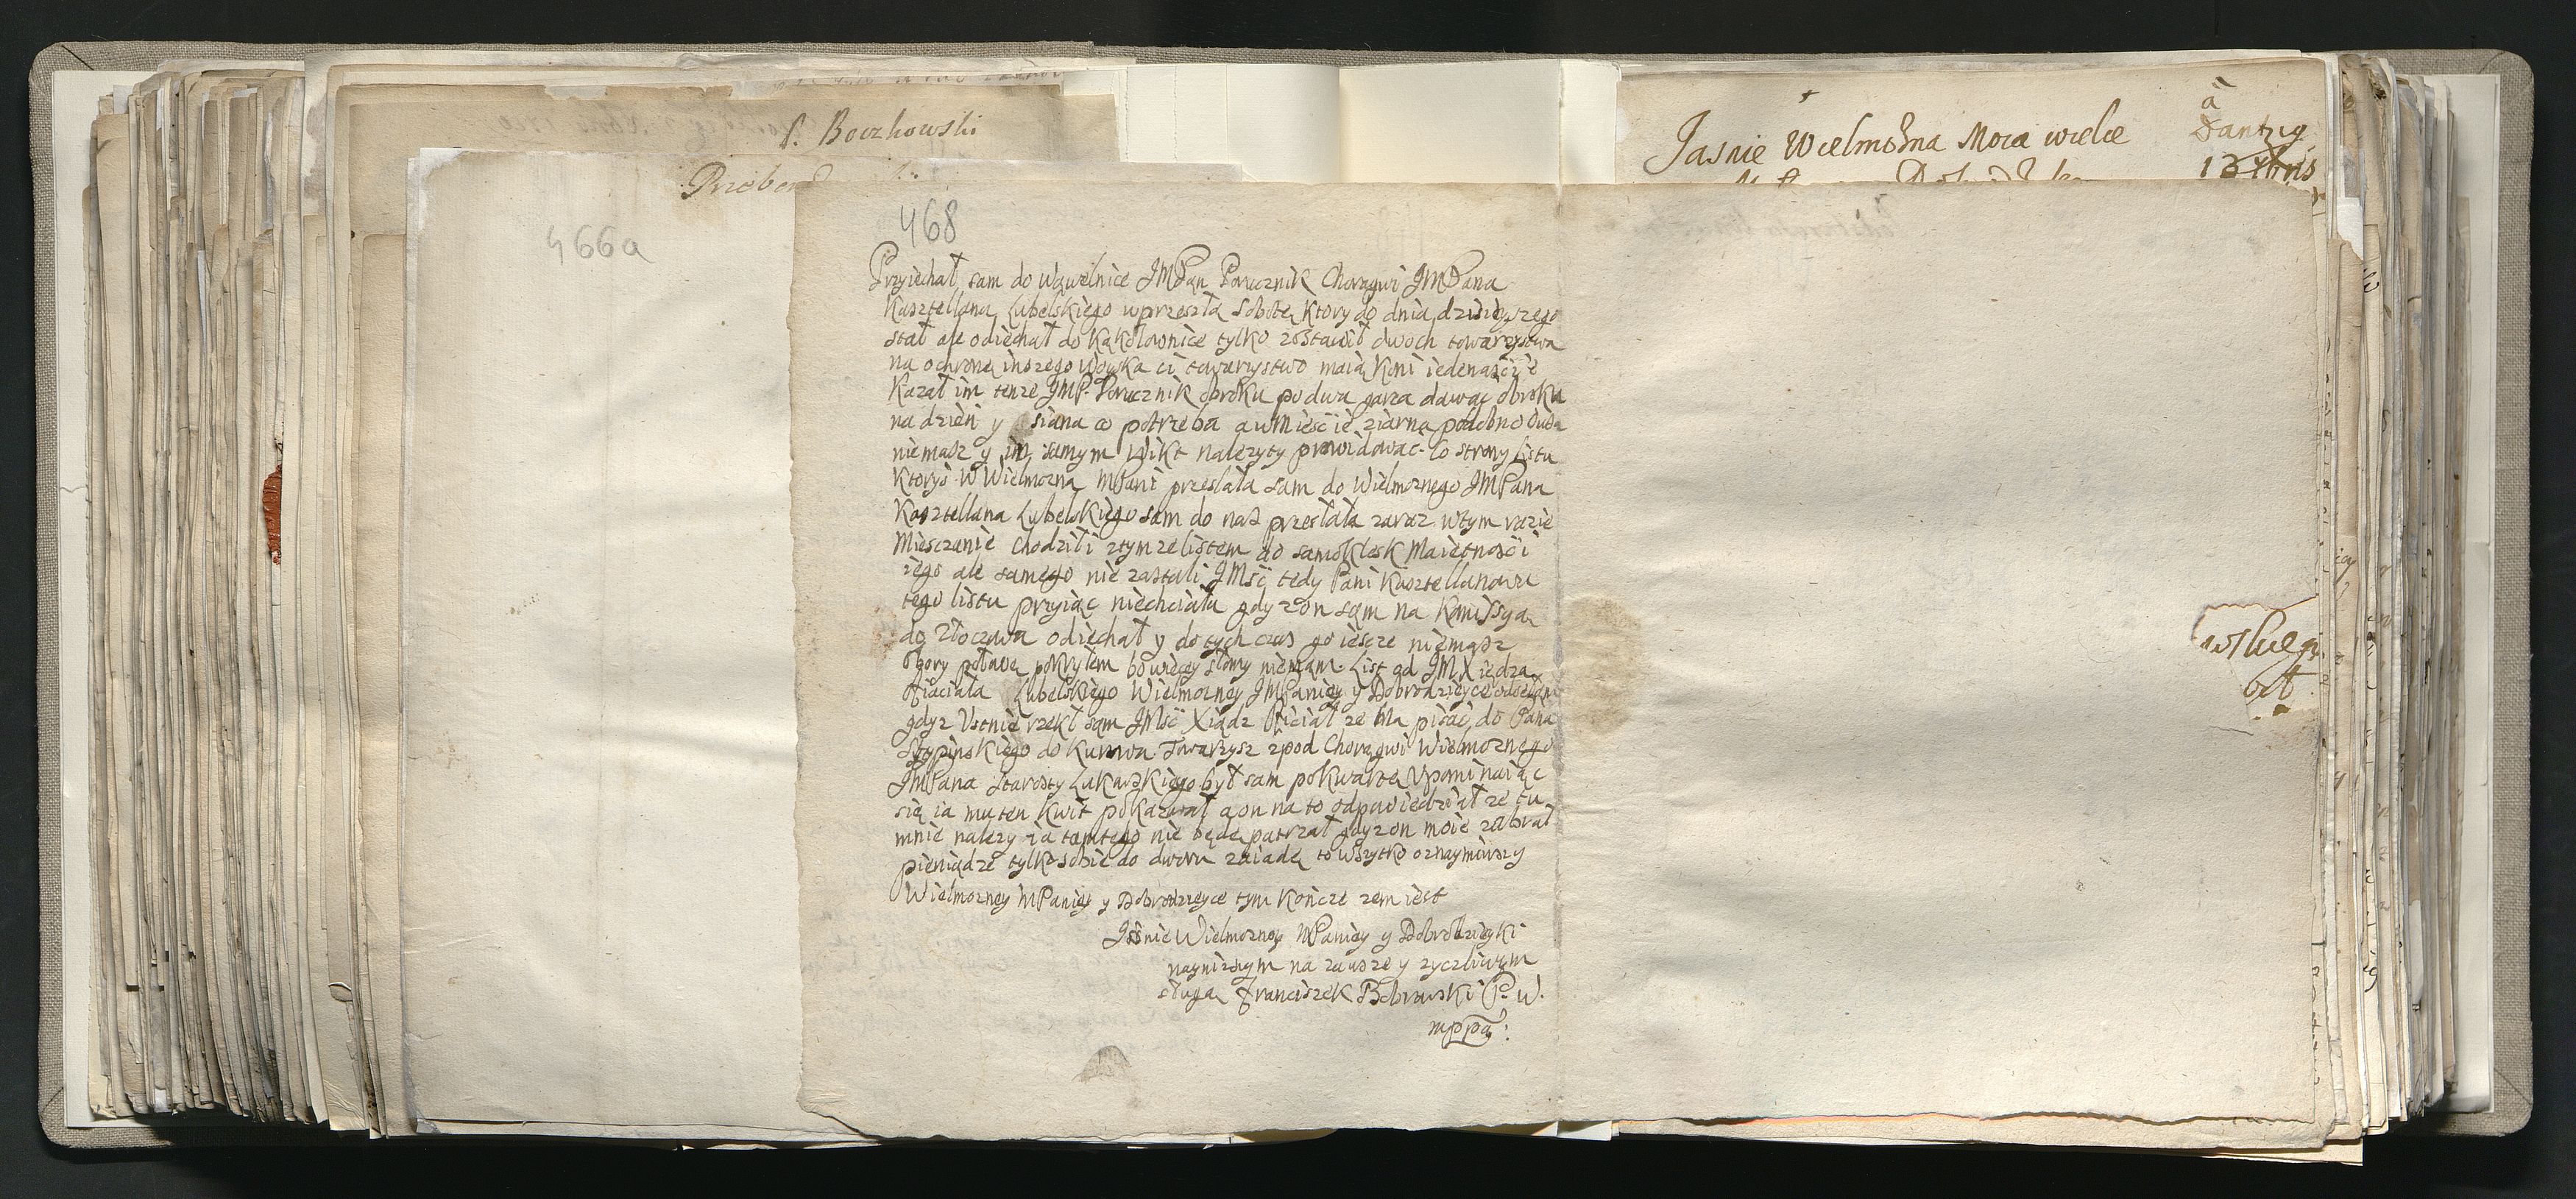 P. Boczkowski
466a
468
Przyiechał sam do Wąwelnice JMPan Porucznik Chorągwi JMPana
Kasztellana Lubelskiego wprzeszłą Sobotę Ktory do dnia dzisieyszego
stał ale odiechał do Kąkolownice tylko zostawił dwoch towarzystwa
na ochronę inszego Woyska ci towarzystwo maią Koni iedenaście
Kazał im tenze JMP. Porucznik obroku po dwa garca dawac obroku
na dzien y siana co potrzeba a wmiescie ziarna podobno
niemasz y im samym Wikt nalezyty prowidowac. Co strony listu
Ktorys W Wielmozna MPani przesłała sam do Wielmoznego JMPana
Kasztellana Lubelskiego sam do nas przesłała zaraz wtym razie
Miesczanie chodzili ztym ze listem do Samoklesk Maiętnosci
iego ale samego nie zastali JMsć tedy Pani Kasztellanowa
tego listu przyiąc niechciała gdyz on sam na Komissyą
do Złoczowa odiechał y dotych czas go iescze niemasz
Obory połacę pokryłem bo więcy słomy niemam. List od JMXiędza
Oficiała Lubelskiego Wielmozney JMPaniey y Dobrodzieyce odsełam
gdyz Ustnie rzekł sam JMsć Xiądz Oficiał ze Ma pisac do Pana
do Kurowa. Towarzysz zpod Chorągwi Wielmoznego
JMPana Starosty Łukowskiego był sam pokwartę Upominaiąc
się ia mu ten Kwit pokazował a on na to odpowiedział ze tu
mnie nalezy ia tamtego nie będę patrzał gdyz on moie zabrał
pieniądze tylko sobie do dworu zaiadę to wszytko oznaymiwszy
Wielmozney MPaniey y Dobrodzieyce tym Koncze zem iest
Jasnie Wielmozney MPaniey y Dobrodzieyki
nayniszym na zawsze y zyczliwym
sługą Franciszek Bobrowski P. W.
mppa:
Jasnie Wielmożna Moia wielce
a
Dantzig
13